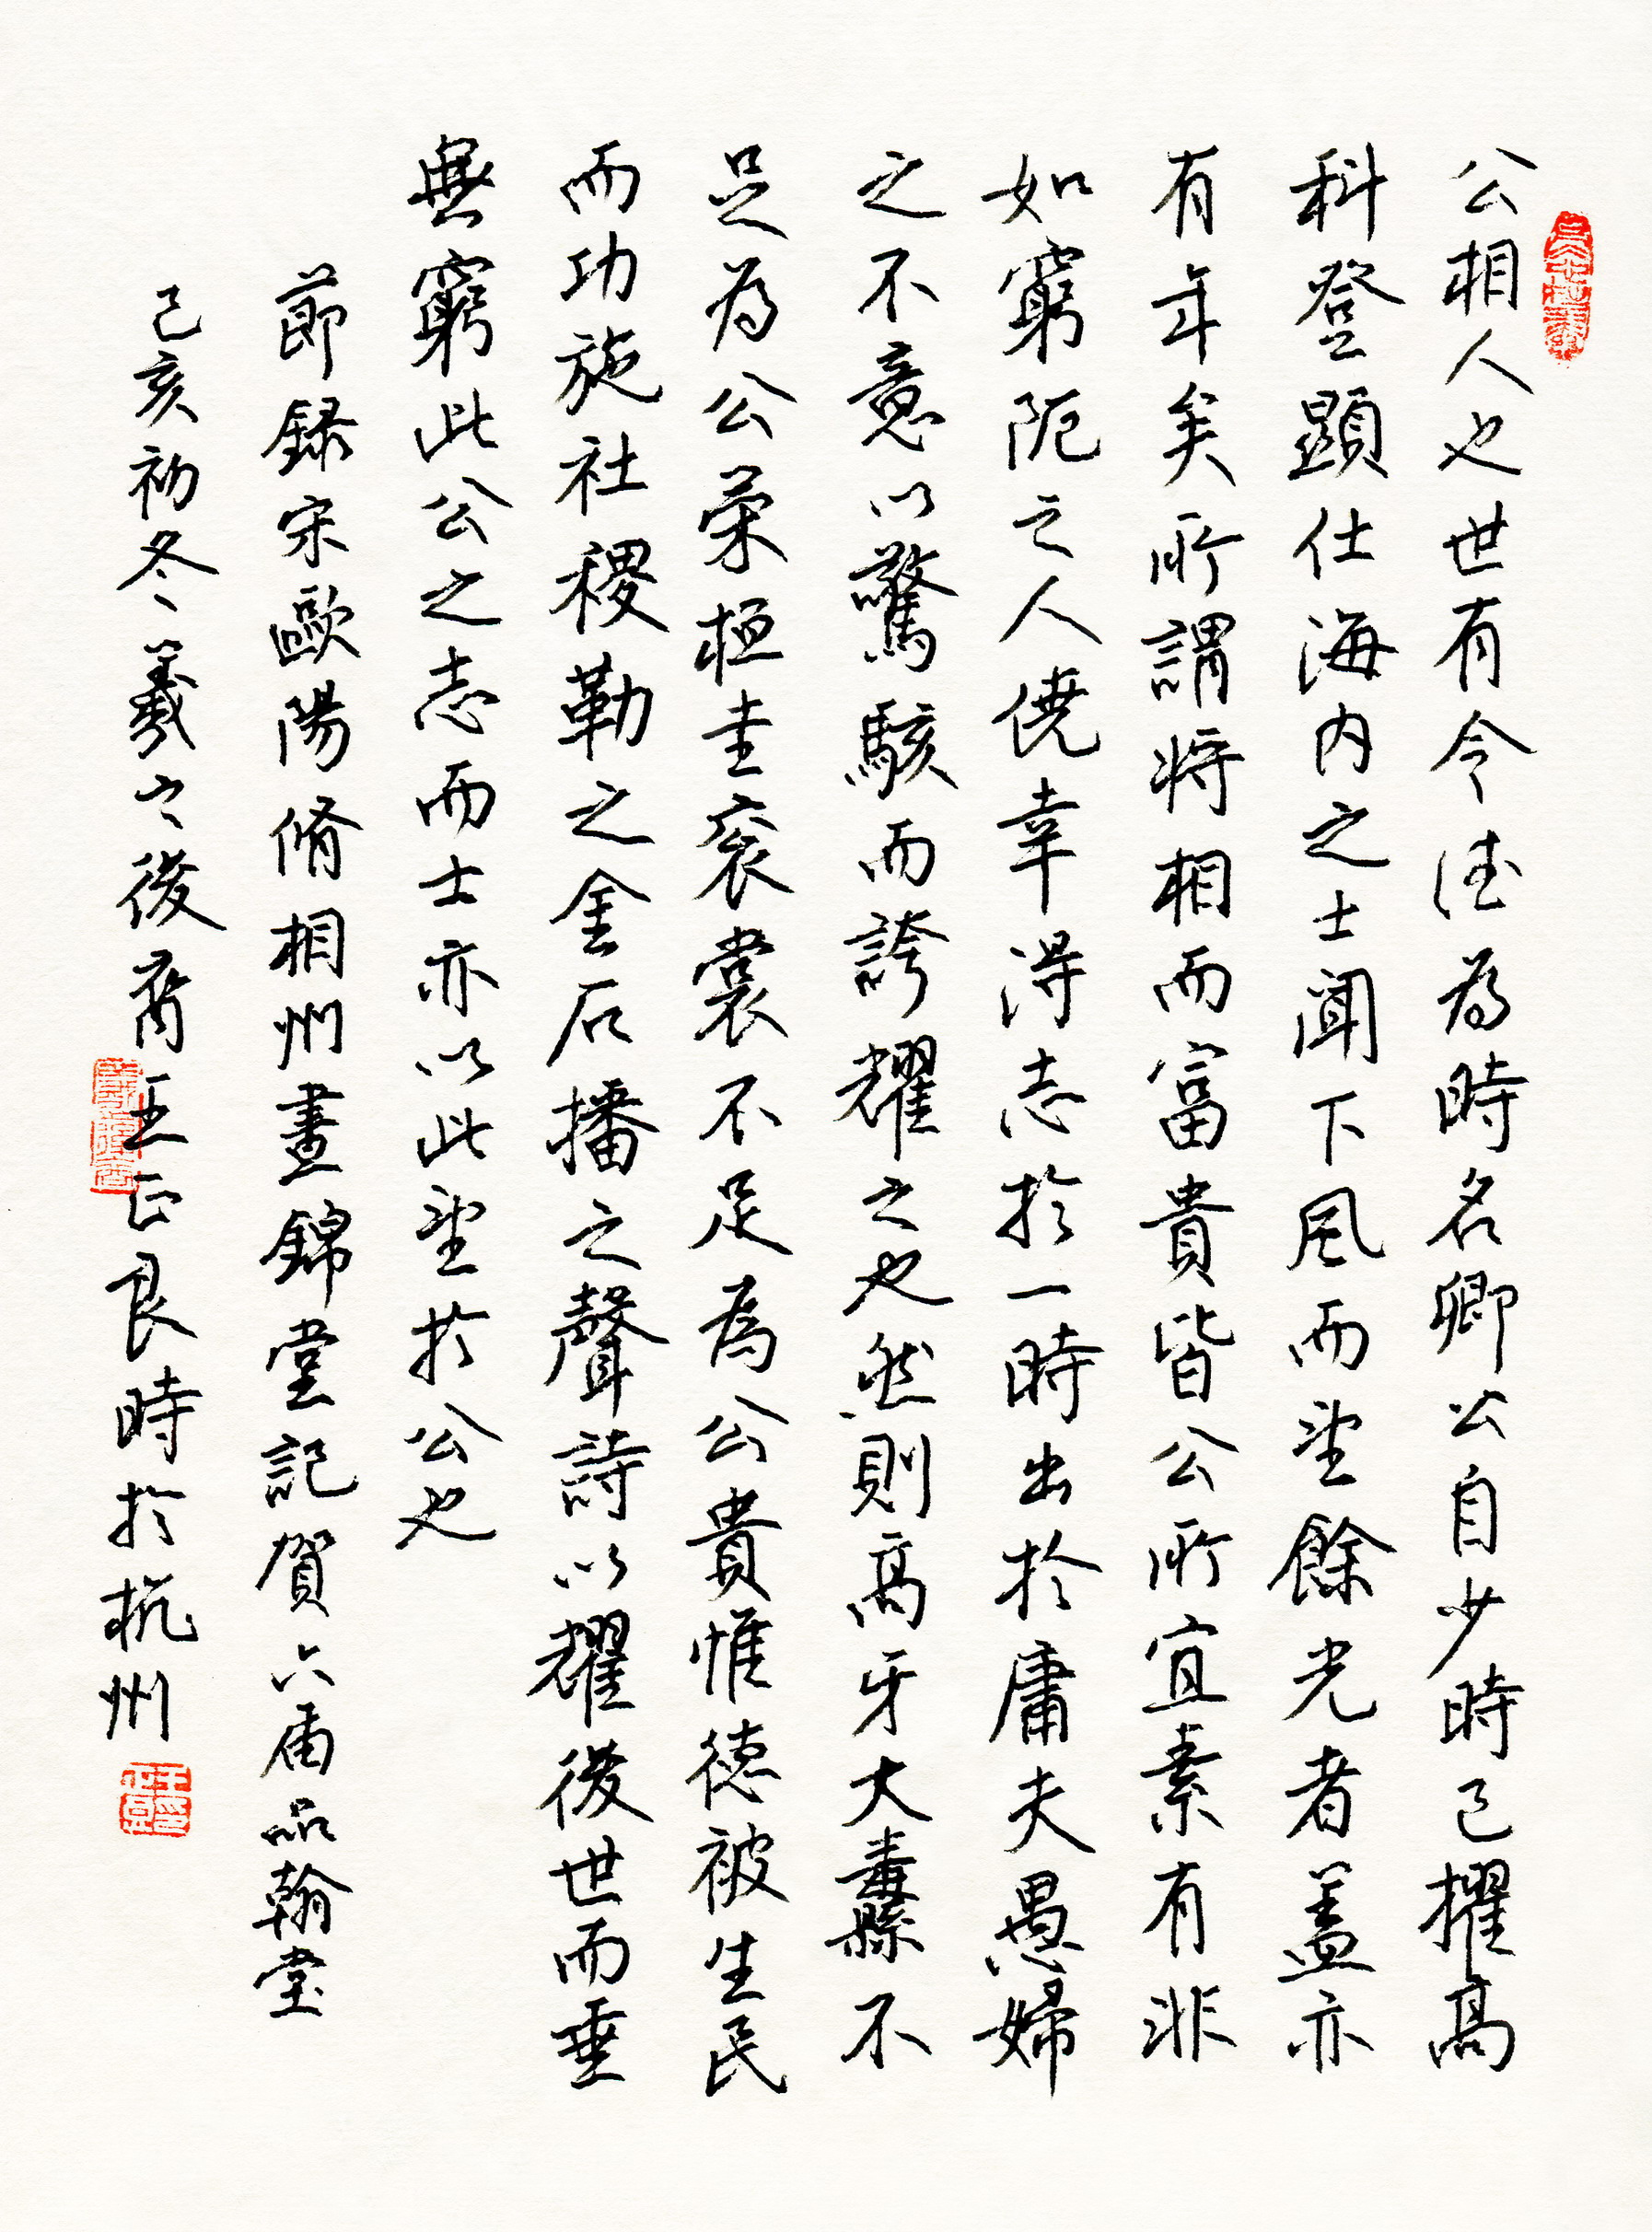 公相人也世有令德為時名卿公自少時已擢高
科登顯仕海內之士聞下風而望餘光者蓋亦
有年矣所謂將相而富貴皆公所宜素有非
如窮阨之人僥幸得志於一時出於庸夫愚婦
之不意以驚駭而誇耀之也然則高牙大纛不
足為公榮桓圭袞裳不足為公貴惟德被生民
而功施社稷勒之金石播之聲詩以耀後世而垂
無窮此公之志而士亦以此望於公也
節錄宋歐陽脩相州晝錦堂記賀六届品翰堂
己亥初冬羲之後裔王正良時於杭州